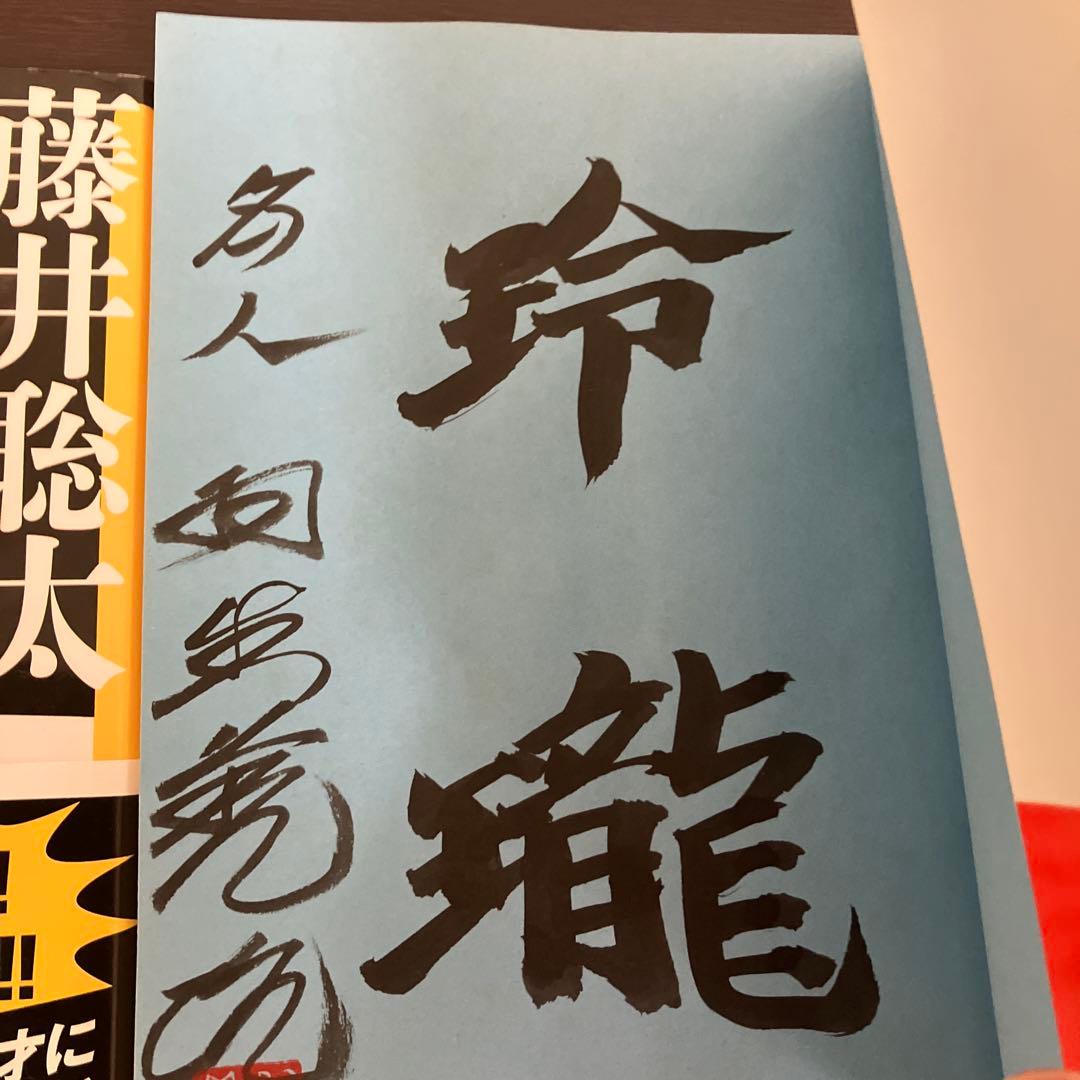 玲瓏
名人 羽生善治
藤井聡太
!!
!!
に
才